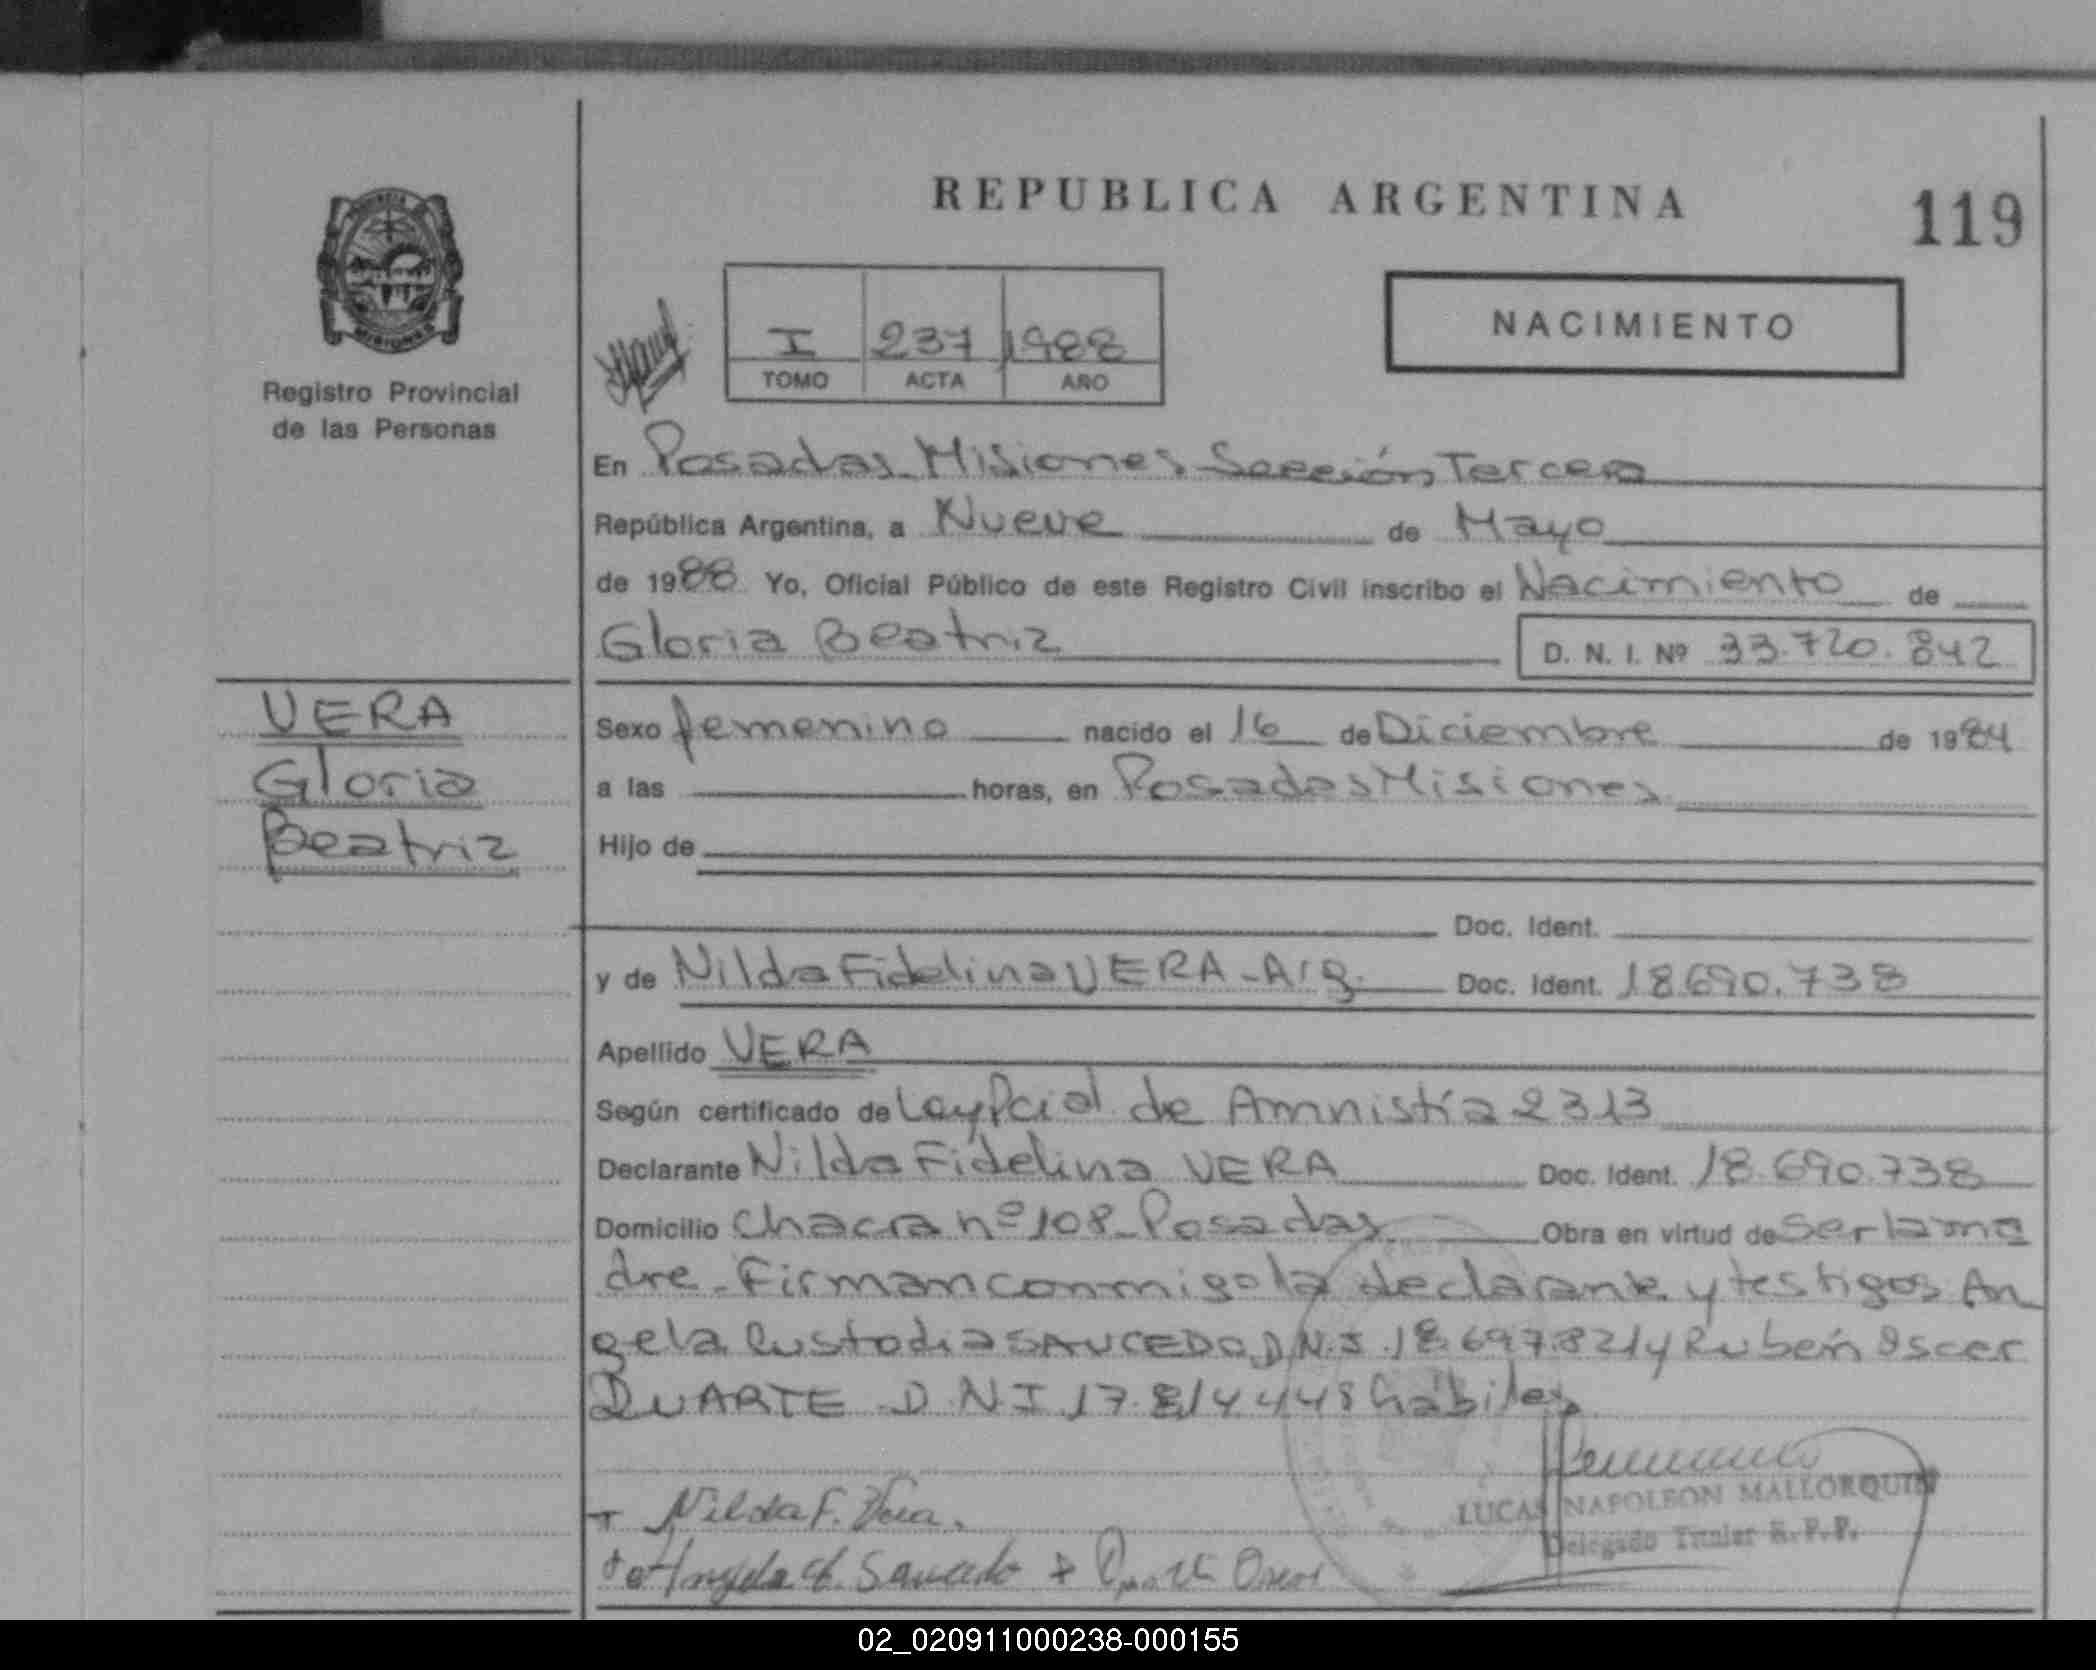 REPUBLICA ARGENTINA
119
PROVINCIA DE
MISIONES
Registro Provincial
de las Personas
I 237 1988
TOMO ACTA AÑO
NACIMIENTO
En Posadas Misiones Sección Tercera
República Argentina, a Nueve de Mayo
de 1988 Yo, Oficial Público de este Registro Civil inscribo el Nacimiento de
Gloria Beatriz D. N. I. Nº 33.720.842
VERA
Gloria
Beatriz
Sexo femenino nacido el 16 de Diciembre de 1984
a las horas, en Posadas Misiones
Hijo de
Doc. Ident.
y de Nilda Fidelina VERA - Arg. Doc. Ident. 18690.738
Apellido VERA
Según certificado de Ley Pcial de Amnistía 2313
Declarante Nilda Fidelina VERA Doc. Ident. 18.690.738
Domicilio Chacra nº 108 - Posadas Obra en virtud de Ser la ma
dre - Firman conmigo la declarante y testigos An
gela Custodia SAUCEDO D.N.I. 18.697.821 y Rubén Oscar
DUARTE D.N.I 17.814.448 hábiles
LUCAS NAPOLEON MALLORQUIN
Delegado Titular R.P.P.
Nilda F. Vera.
Angela C. Saucedo Oscar
02_020911000238-000155